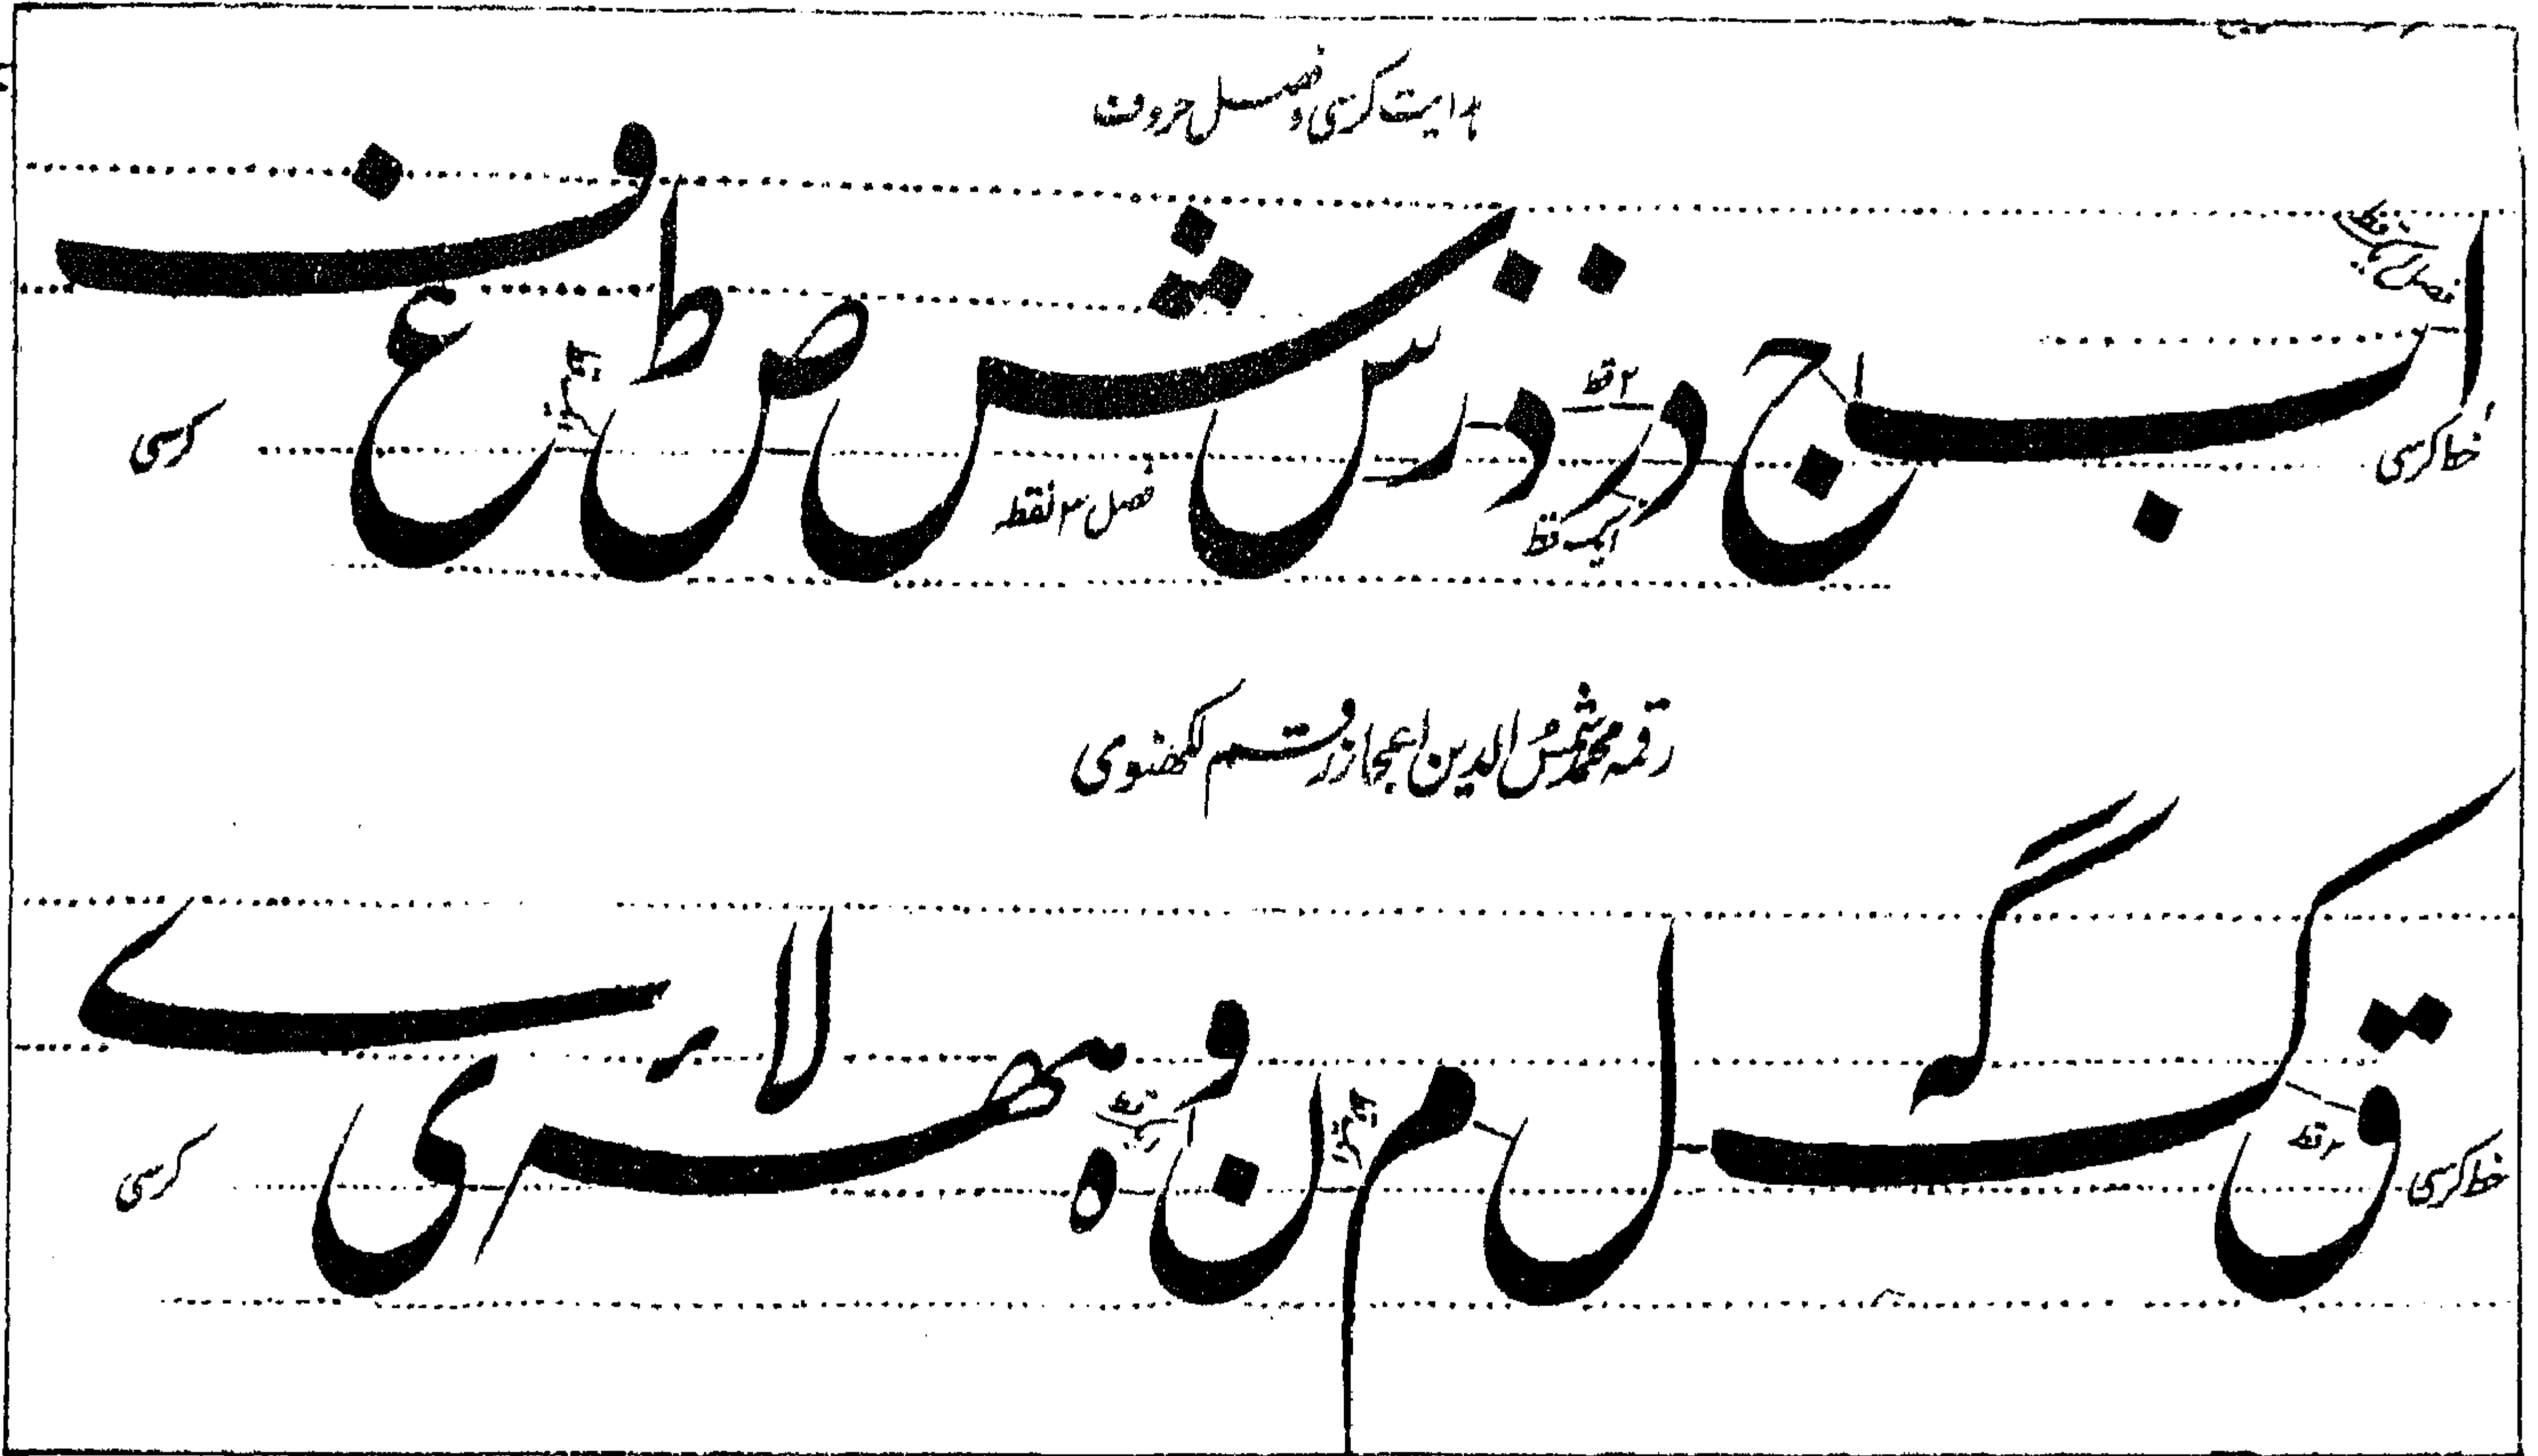 ہدایت کرسی و فصل حروف
ا ب ج د ر ذ ر س ش ص ط ع ف
خط کرسی
۲ قط
ایک قط
فصل ۳ نقطہ
کرسی
رقمہ محمد شمس الدین اعجاز رقم لکھنوی
ق ک گ ل م ن و ہ ھ لا ء ی ے
خط کرسی
۲ قط
کرسی